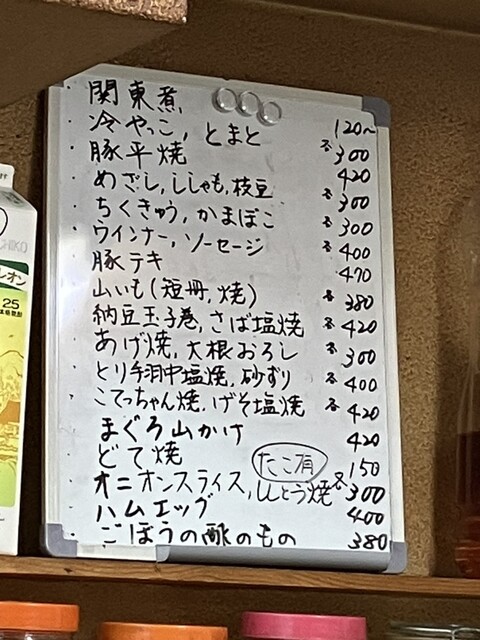 関東煮 120~
冷やっこ, とまと 各300
豚平焼 420
めざし, ししゃも, 枝豆 各300
ちくきゅう, かまぼこ 各300
ウインナー, ソーセージ 各400
豚テキ 470
山いも(短冊, 焼) 各380
納豆玉子巻, さば塩焼 各420
あげ焼, 大根おろし 各300
とり手羽中塩焼, 砂ずり 各400
こてっちゃん焼, げそ塩焼 各420
まぐろ山かけ 420
どて焼 たこ有 150
オニオンスライス, ししとう焼 各300
ハムエッグ 400
ごぼうの酢のもの 380
CHIKO
レオン
25